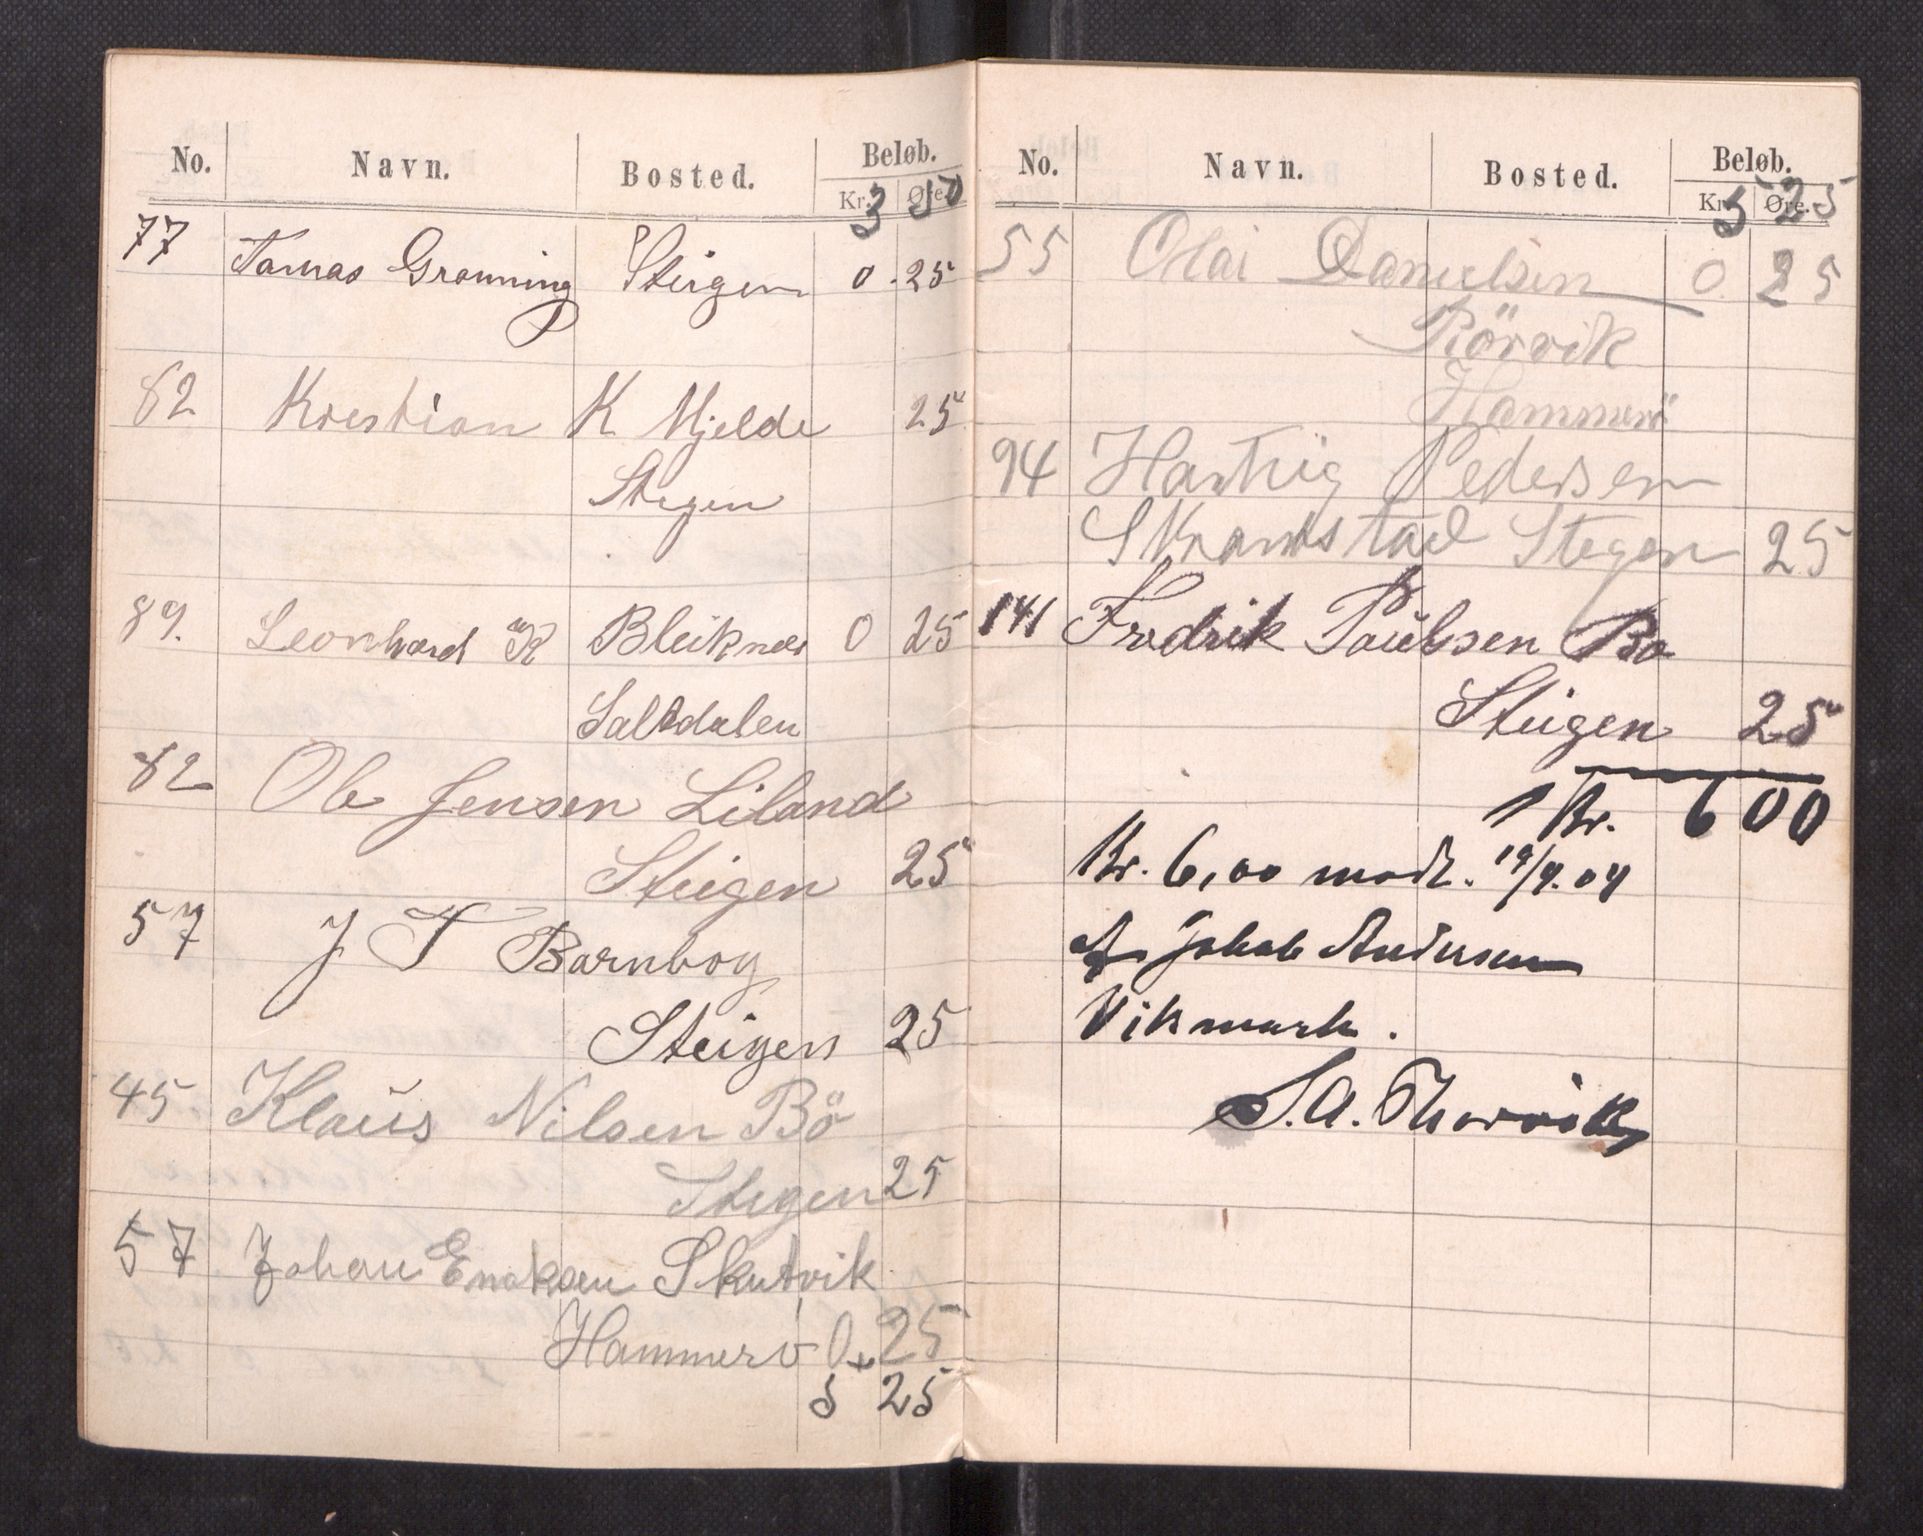 No. Navn. Bosted. Beløb.
Kr. Øre.
3 50
77 Tomas Grønning Steigen 0.25
82 Krestian K Mjelde 25
Stegen
89. Leonhard K Bleiknes 0 25
Saltdalen
82 Ole Jensen Liland
Steigen 25
57 J T Barnbog
Steigen 25
45 Klaus Nilsen Bö
Stegen 25
57 Johan Enoksen Skutvik
Hammerö 0 25
5 25
No. Navn. Bosted. Beløb.
Kr. Øre.
5 25
55 Olai Danielsen 0. 25
Rörvik
Hammerö
94 Hartvig Pedersen
Skramstad Stegen 25
141 Fredrik Paulsen Bø
Steigen 25
Kr. 600
Kr. 6,00 modt. 19/9.04
af Jakob Andersen
Vikmark.
S.A. Thorvik